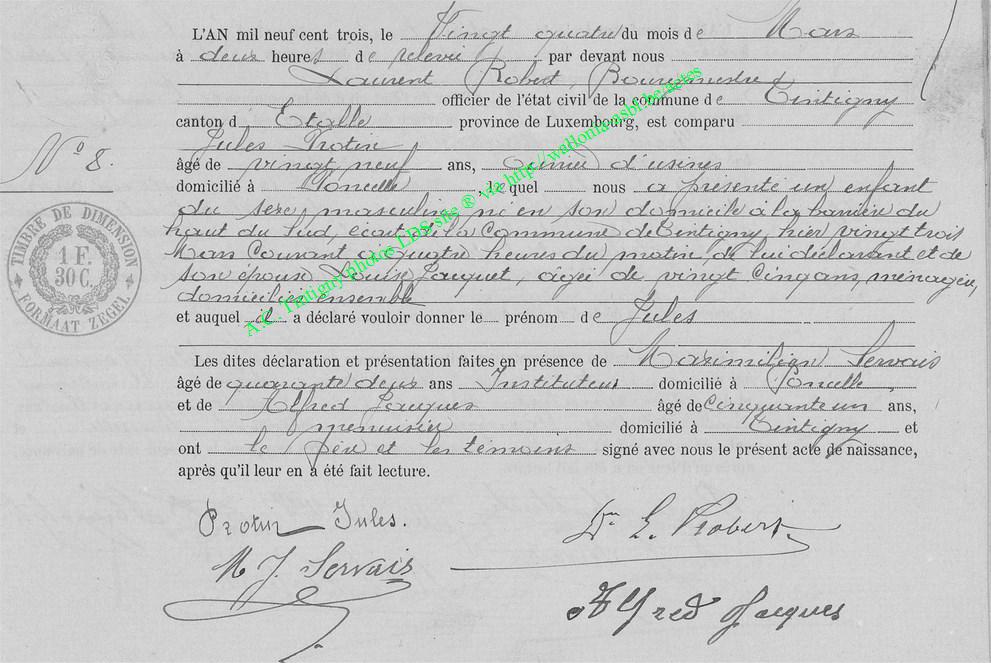 L'AN mil neuf cent trois, le Vingt quatre du mois de Mars
à deux heures de relevée, par devant nous
Laurent Robert, Bourgmestre
officier de l'état civil de la commune de Tintigny
canton d Etalle province de Luxembourg, est comparu
Jules Protin
N° 8.
âgé de vingt neuf ans, ouvrier d'usines
domicilié à Poncelle, lequel nous a présenté un enfant
du sexe masculin, né en son domicile à la barrière du
haut du Sud, écart de la Commune de Tintigny, hier vingt trois
Mars Courant à quatre heures du matin, de lui déclarant et de
son épouse Louise Jacquet, agée de vingt cinq ans, ménagère,
domiciliés ensemble
et auquel il a déclaré vouloir donner le prénom de Jules
Les dites déclaration et présentation faites en présence de Maximilien Servais
âgé de quarante deux ans Instituteur domicilié à Poncelle,
et de Alfred Jacques âgé de Cinquante un ans,
menuisier domicilié à Tintigny et
ont le père et les témoins signé avec nous le présent acte de naissance,
après qu'il leur en a été fait lecture.
Protin Jules.
Dr L. Robert
M J. Servais
Alfred Jacques
TIMBRE DE DIMENSION
1 F.
30 C.
FORMAAT ZEGEL
A.C. Tintigny photos LDS site ® via http://wallonia-asbl.be/actes